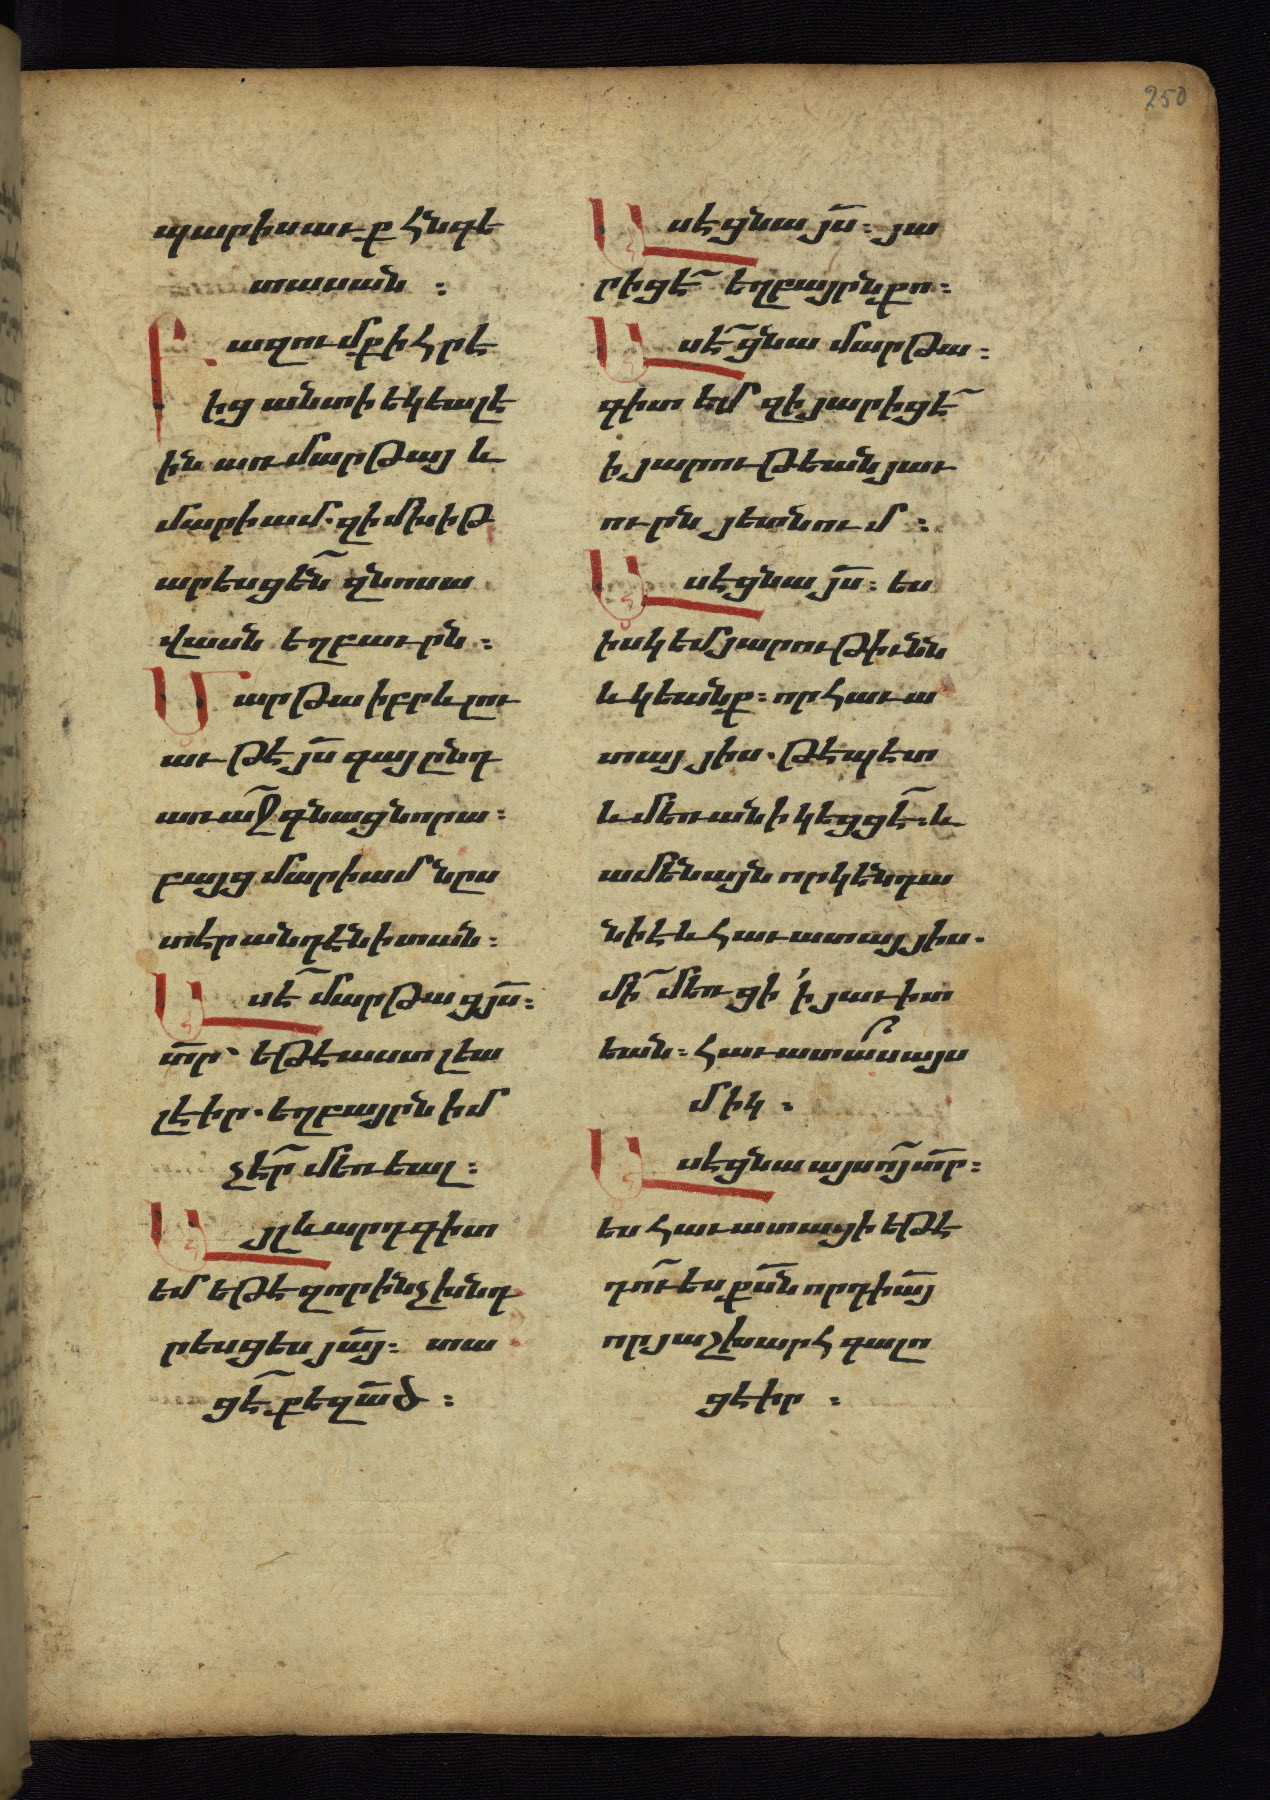 250
պարիսաւք հնգե
տասան :
Բազումք ի հրէ
ից անտի եկեալ է
ին առ մարթայ և
մարիամ. զի մխիթ
արեսցեն զնոսա
վասն եղբաւրն :
Մարթա իբրև լու
աւ թէ յս գայ ընդ
առաջ գնաց նորա :
բայց մարիամ նըս
տէր անդէն ի տան :
Ասէ մարթա ցյս :
տր՝ եթէ աստ լեա
լէիր. եղբայրն իմ
չէր մեռեալ :
Այլ և արդ գիտ
եմ եթէ զոր ինչ խնդ
րեսցես յայ : տա
ցէ քեզ ած :
Ասէ ցնա յս : յա
րիցէ եղբայրն քո :
Ասէ ցնա մարթա :
գիտեմ զի յարիցէ
ի յարութեան յաւ
ուրն յետնում :
Ասէ ցնա յս : ես
իսկ եմ յարութիւնն
և կեանք : որ հաւա
տայ յիս. թէպէտ
և մեռանի կեցցէ : և
ամենայն որ կենդա
նի է և հաւատայ յիս.
մի մեռցի ՛ի յաւիտ
եան : հաւատաս այս
միկ :
Ասէ ցնա այո տր :
ես հաւատացի եթէ
դու ես քսն որդի այ
որ յաշխարհ գալո
ցէիր :